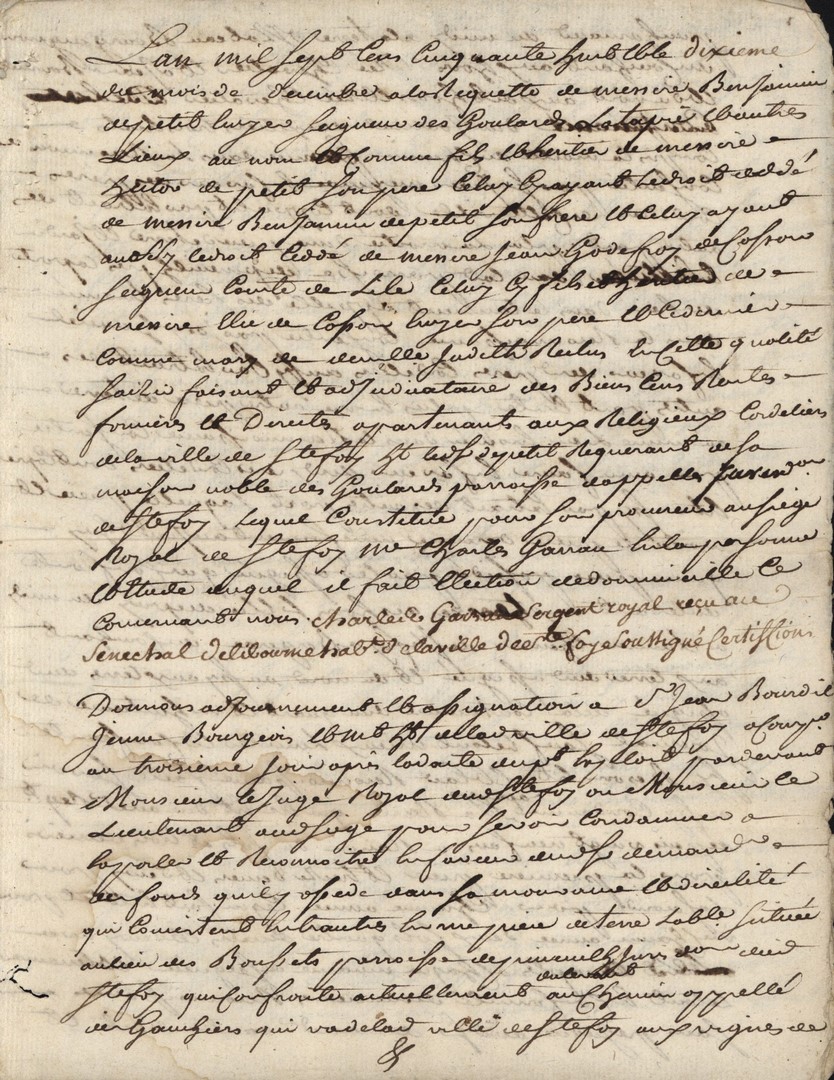 Lan mil sept Cens Cinquante huit Et le dixieme
du mois de decembre a la Requette de messire Benjamin
de petit Ecuyer Seigneur des Goulards Latapie Et autres
Lieux au nom Et Comme fils Et heritier de messire
hector de petit Son pere Celuy Cy ayant Le droit Ceddé
de messire Benjamin de petit Son frere Et Celuy ayant
aussy le droit Ceddé de messire Jean Godefroy de Cosson
Seigneur Comte de Lile Celuy Cy fils et heritier de
messire Elie de Cosson Ecuyer Son pere Et Ce dernier
Comme mary de demlle Judith Reclus En Cette qualité
faisant Et adjudicataire des Biens Cens Rentes
foncieres Et Directes apartenants aux Religieux Cordeliers
de la ville de Ste foy Ht led Sr de petit Requerant de sa
maison noble des Goulards parroisse dappelles Jurisdon
de Ste foy Lequel Constitue pour Son procureur au siege
Royal de Ste foy Me Charles Garrau En la personne
Et Etude duquel il fait Election de domicille Ce
Concernant nous Charles Sergent royal reçu au
Senechal de libourne habt de la ville de Ste foye Soussigné Certiffions

Donnons adjournement Et assignation a Sr Jean Bourdil
Jeune Bourgeois Et mt Ht de lad ville de Ste foy a Comp
au troisieme Jour après la datte du pt Exploit pardevant
Monsieur le Juge Royal dud Ste foy ou Monsieur le
Lieutenant aud siege pour Se voir Condamner a
Exporler Et Reconnoitre En faveur dud Sr demandr
les fonds quil possede dans Sa mouvance Et directité
qui Concistent Entrautres En une piece de terre Lable Située
au lieu des Bouffets parroisse de pineuilh Jurisdon dud
Ste foy qui Confronte actuellement du levant au Chemin appellé
des Gauthiers qui va de lad ville de Ste foy aux vignes de